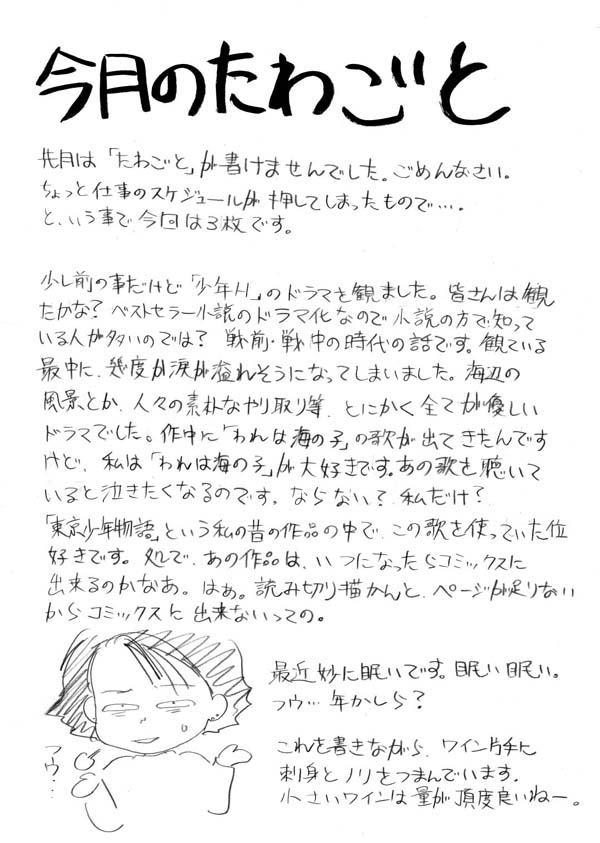 今月のたわごと
先月は「たわごと」が書けませんでした。ごめんなさい。
ちょっと仕事のスケジュールが押してしまったもので…。
と、いう事で今回は3枚です。
少し前の事だけど「少年H」のドラマを観ました。皆さんは観
たかな？ベストセラー小説のドラマ化なので小説の方で知って
いる人が多いのでは？戦前・戦中の時代の話です。観ている
最中に、幾度か涙が溢れそうになってしまいました。海辺の
風景とか、人々の素朴なやり取り等、とにかく全てが優しい
ドラマでした。作中に「われは海の子」の歌が出てきたんです
けど、私は「われは海の子」が大好きです。あの歌を聴いて
いると泣きたくなるのです。ならない？私だけ？
「東京少年物語」という私の昔の作品の中で、この歌を使っていた位
好きです。処で、あの作品は、いつになったらコミックスに
出来るのかなあ。はぁ。読み切り描かんと、ページが足りない
からコミックスに出来ないっての。
最近妙に眠いです。眠い眠い。
フウ…年かしら？
これを書きながら、ワイン片手に
刺身とノリをつまんでいます。
小さいワインは量が頂度良いねー。
フウ…